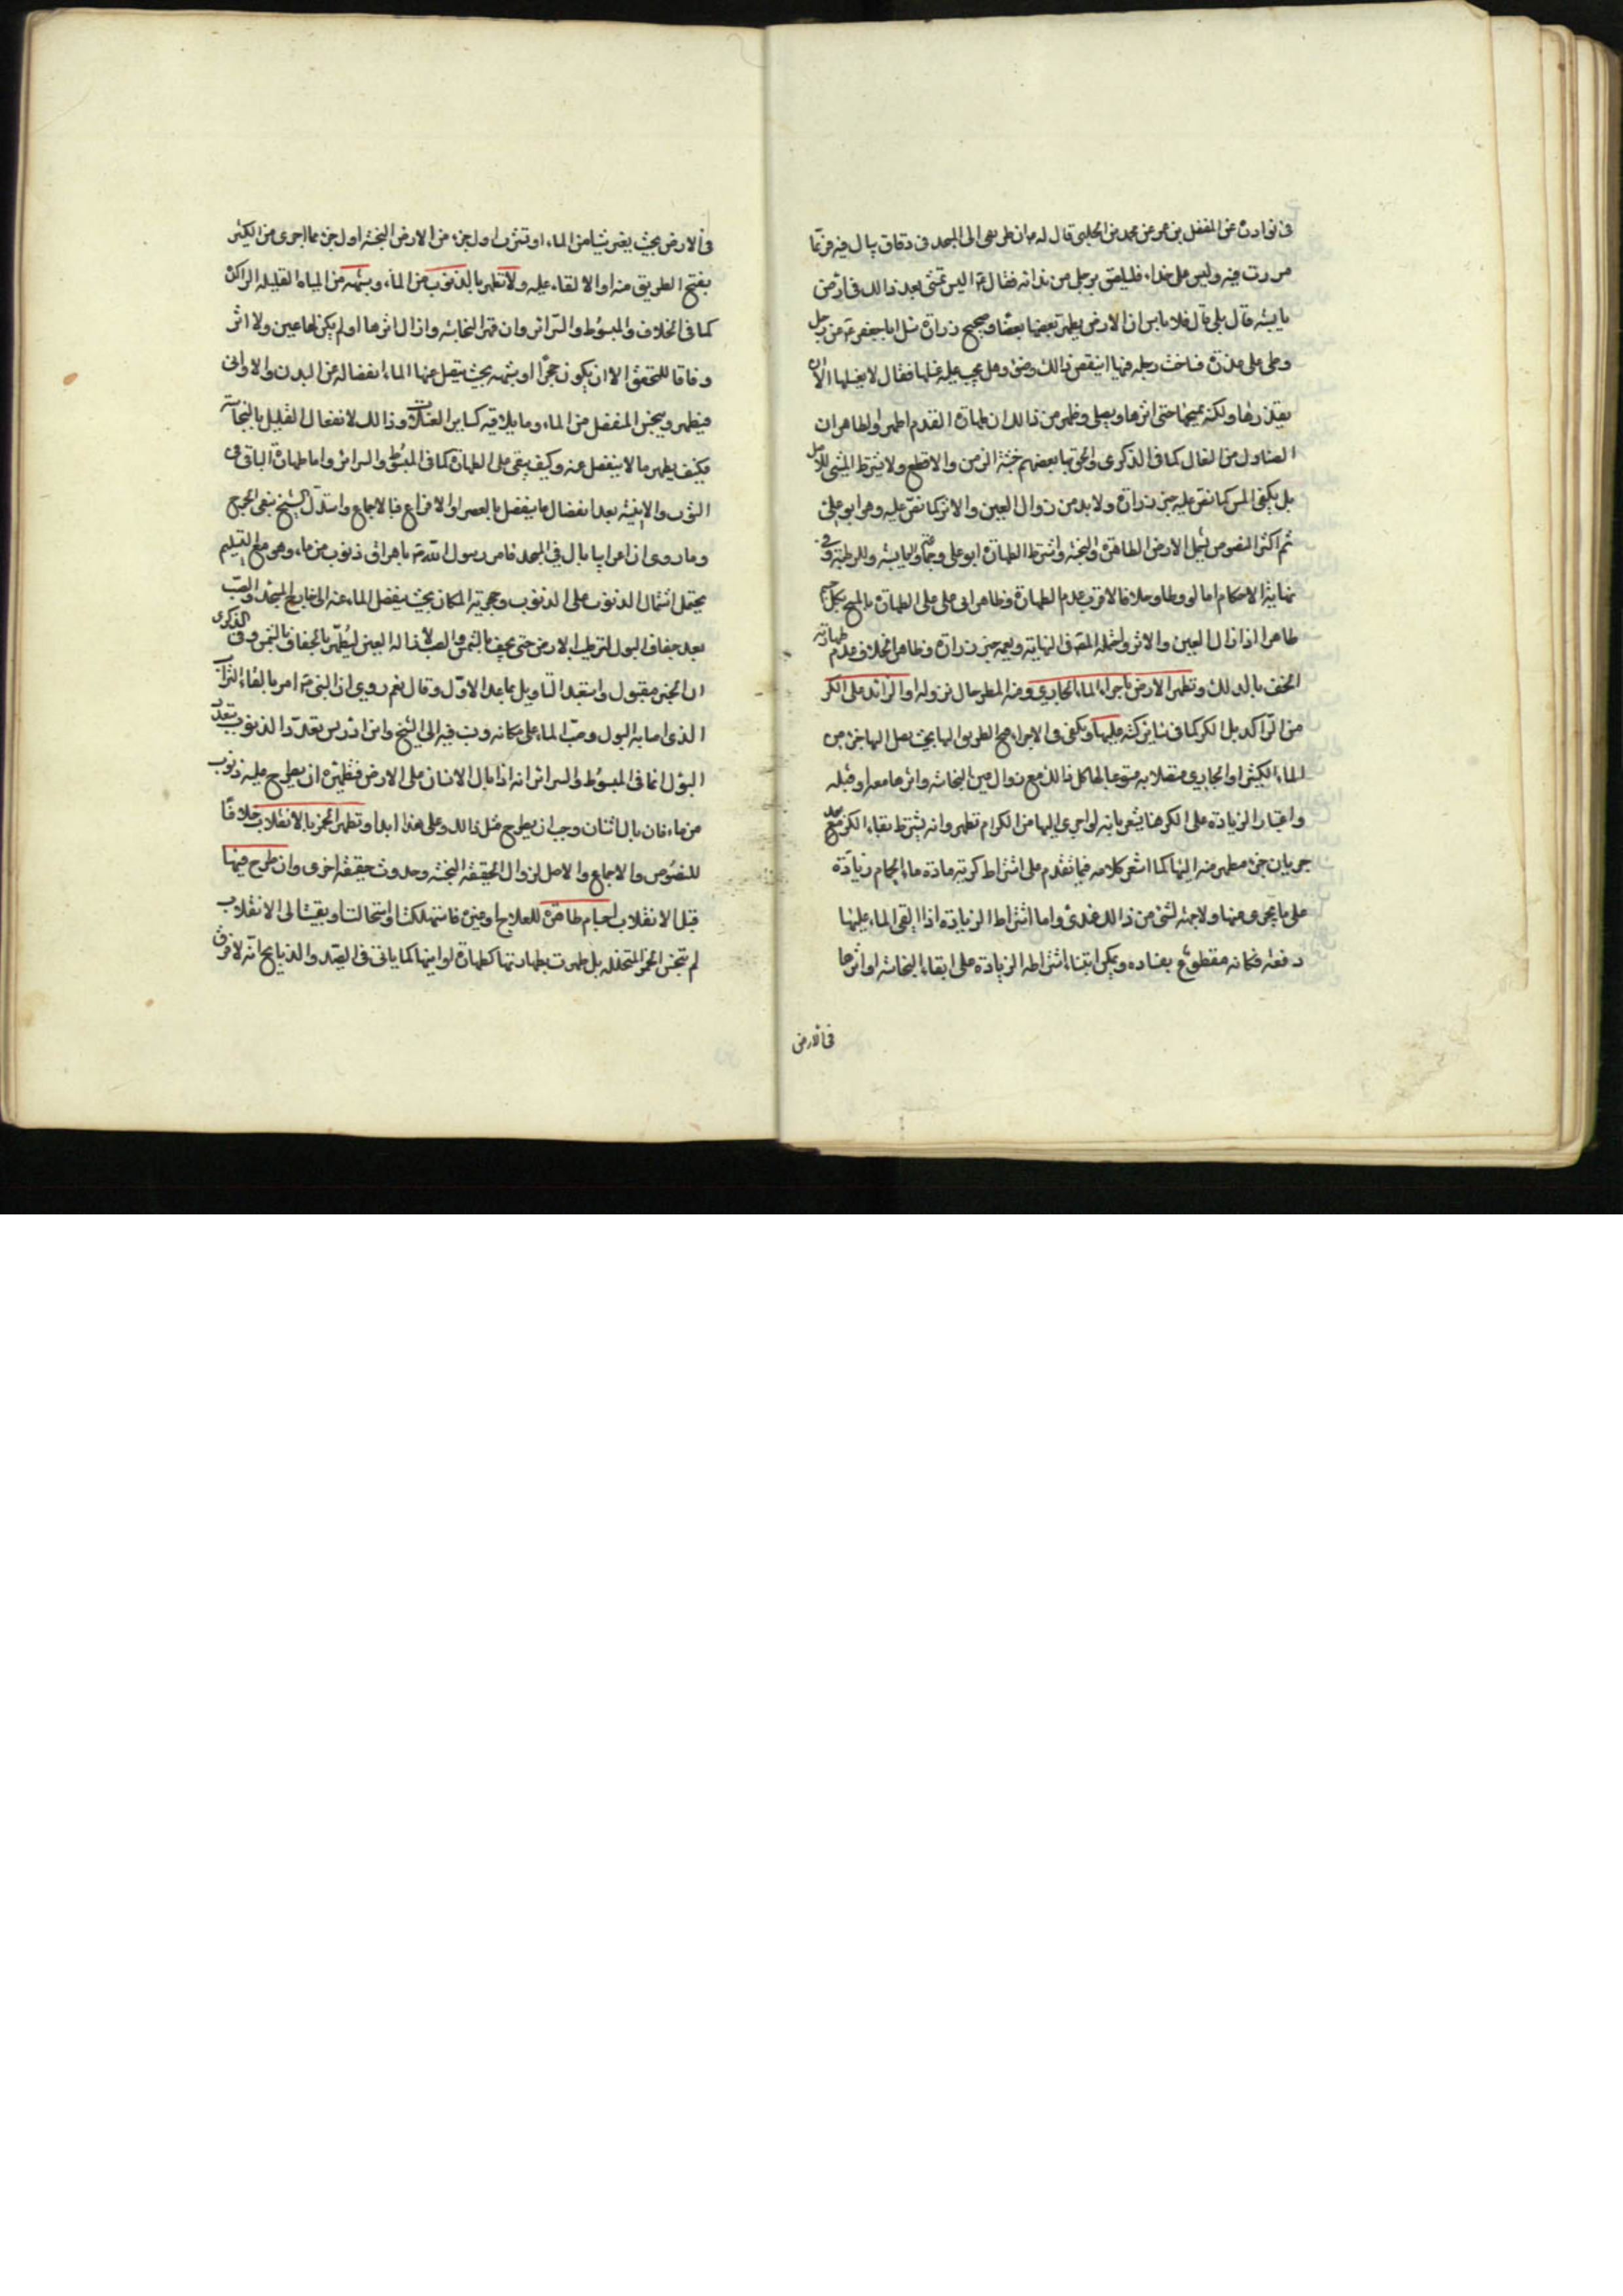 في نوادره عن المفضل بن عمر عن محمد بن الحلبي قال له ان طريقي الى المسجد في زقاق يبال فيه فربما
مررت فيه وليس على حذاء فيلصق برجلي من نداته فقال ع اليس تمشي بعد ذالك في ارض
يابسة قال بلى قال فلا باس ان الارض يطهر بعضها بعضا وصحيح زرارة سئل ابا جعفر ع عن رجل
وطى على عذرة فساخت رجله فيها اينقض ذالك وضوء وهل يجب عليه غسلها فقال لا يغسلها الا ان
يقذرها ولكنه يمسحها حتى اثرها ويصلي وظهر من ذالك ان طهارة القدم اظهر والظاهر ان
الصنادل من النعال كما في الذكرى والحق بها بعضهم خشبة الزمن والاقطع ولا يشترط المشي للاصل
بل يكفي المس كما نص عليه خبر زرارة ولا بد من زوال العين والاثر كما نص عليه وهو ابو علي
ثم اكثر النصوص يشمل الارض الطاهرة والنجسة واشترط الطهارة ابو علي واليابسة والرطبة وفي
نهاية الاحكام اما لو وطا وحلا فالاقرب عدم الطهارة وظاهر ابي علي الطهارة بالمسح بكل جسم
طاهر اذا زال العين والاثر ومثله المصنف في النهاية ويعمه خبر زرارة وظاهر الخلاف عدم طهارته
الخف بالدلك وتطهر الارض باجراء الماء الجاري ومنه المطر حال نزوله او الزائد على الكر
من الراكد بل الكر كما في ساير كتبه عليها ويكفي في الاجراء فتح الطريق اليها بحيث يصل اليها جزء من
الماء الكثير او الجاري متصلا به مستوعبا لها كل ذالك مع زوال عين النجاسة واثرها معه او قبله
واعتبار الزيادة على الكر هنا يشعر بانه لو اجرى اليها من الكر لم تطهر وانه يشترط بقاء الكر بعد
جريان جزء مطهر منه اليها كما اشعر كلامه فيما تقدم على اشتراط كرية مادة ماء الحمام زيادة
على ما يجري منها ولا جهة لشئ من ذالك عندي واما اشتراط الزيادة اذا القي الماء عليها
دفعة فكانه مقطوع بفساده ويمكن ابتناء اشتراط الزيادة على ابقاء النجاسة او اثرها
في الارض
في الارض بحيث يغير شيئا من الماء او تشرب اول جزء من الارض النجسة اول جزء مما اجرى من الكثير
بفتح الطريق منه او الالقاء عليه ولا تطهر بالذنوب من الماء وشبهه من المياه القليلة الراكدة
كما في الخلاف والمبسوط والسرائر وان قهر النجاسة وازال اثرها او لم يكن لها عين ولا اثر
وفاقا للمحقق الا ان يكون حجرا او شبهه بحيث ينفصل عنها الماء انفصاله عن البدن والاواني
فيطهر وينجس المنفصل من الماء وما يلاقيه كساير الغسالات وذالك لانفعال القليل بالنجاسة
فكيف يطهر ما لا ينفصل عنه وكيف يبقى على الطهارة كما في المبسوط والسرائر واما طهارة الباقي في
الثوب والانية بعد انفصال ما ينفصل بالعصر او الافراغ فبالاجماع واستدل الشيخ بنفي الحرج
وما روي ان اعرابيا بال في المسجد فامر رسول الله ص باهراق ذنوب من ماء وهو مع التسليم
يحتمل اشتمال الذنوب على الذنوب وحجرية المكان بحيث ينفصل الماء عنه الى خارج المسجد والصب
بعد جفاف البول لترطيب الارض حتى يجف بالشمس والصب لاذالة العين ليطهر بالجفاف بالشمس وفي الذكرى
ان الخبر مقبول واستبعد التاويل بما عدا الاول وقال نعم روي ان النبي ص امر بالقاء التراب
الذي اصابه البول وصب الماء على مكانه ونسب فيه الى الشيخ وابن ادريس تعدد الذنوب بتعدد
البول انما في المبسوط والسرائر انه اذا بال الانسان على الارض فتطهيره ان يطرح عليه ذنوب
من ماء فان بال اثنان وجب ان يطرح مثل ذالك وعلى هذا ابدا وتطهر الخمر بالانقلاب خلافا
للنصوص والاجماع والاصل لزوال الحقيقة النجسة وحدوث حقيقة اخرى وان طرح فيها
قبل الانقلاب اجسام طاهرة للعلاج او غيره فاستهلكت او استحالت او بقيت الى الانقلاب
لم تنجس الخمر المتخللة بل طهرت بطهارتها كطهارة اوانيها كما ياتي في الصيد والذبايح انه لا فرق